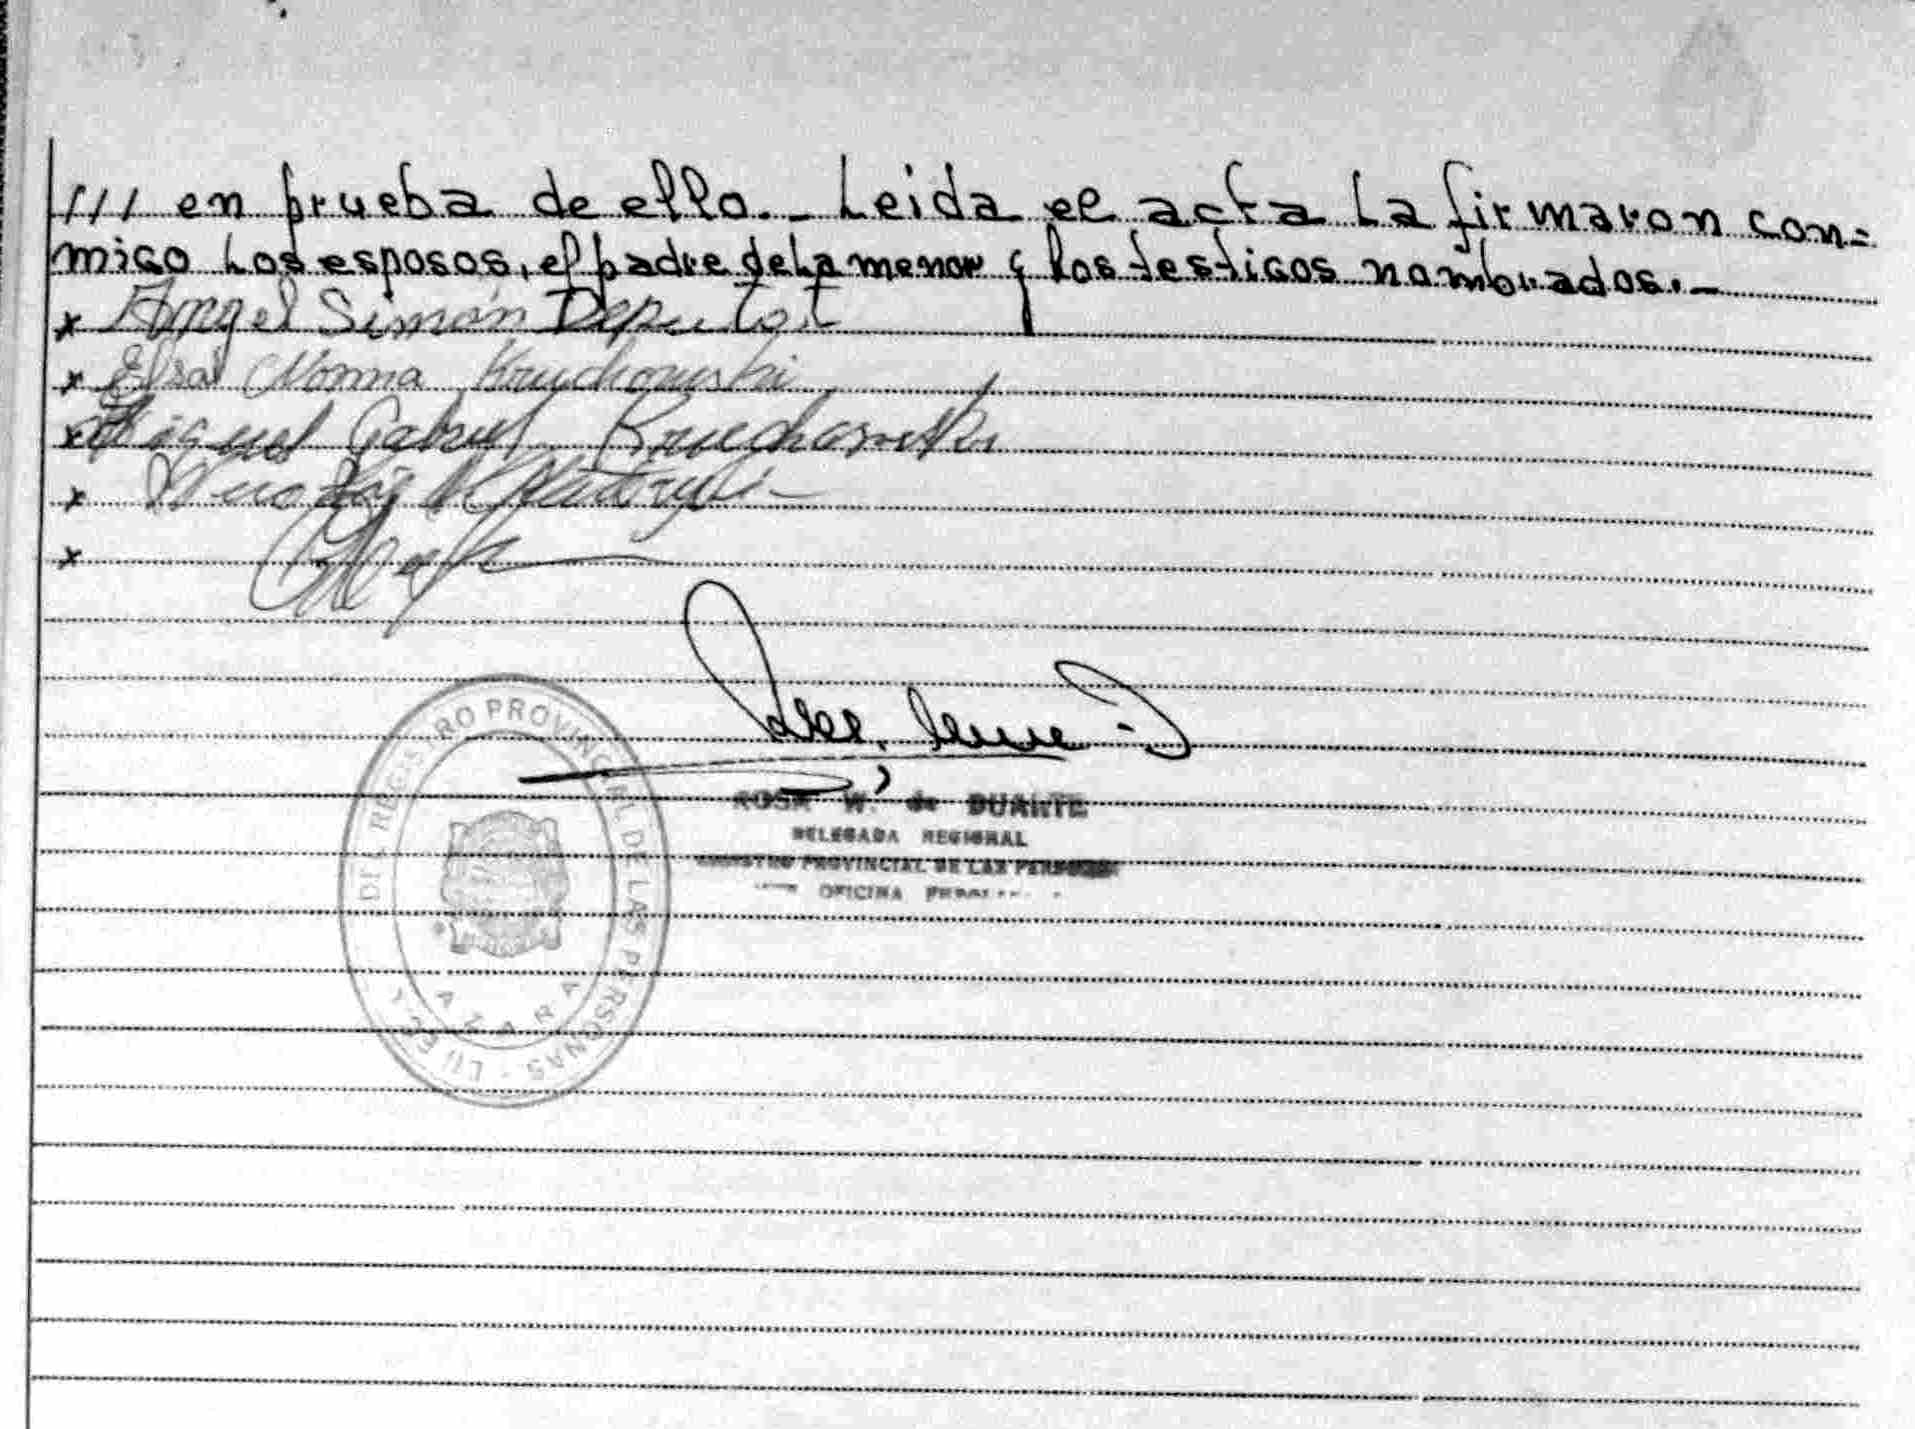 /// en prueba de ello._ Leida el acta la firmaron con=
migo los esposos, el padre de la menor y los testigos nombrados._
x Angel Simón Deputat
x Elsa Norma Kruchowski
x Miguel Gabriel Kruchowski
x
x
ROSA W. de DUARTE
DELEGADA REGIONAL
REGISTRO PROVINCIAL DE LAS PERSONAS
OFICINA
DEL REGISTRO PROVINCIAL DE LAS PERSONAS -
MISIONES
AZARA